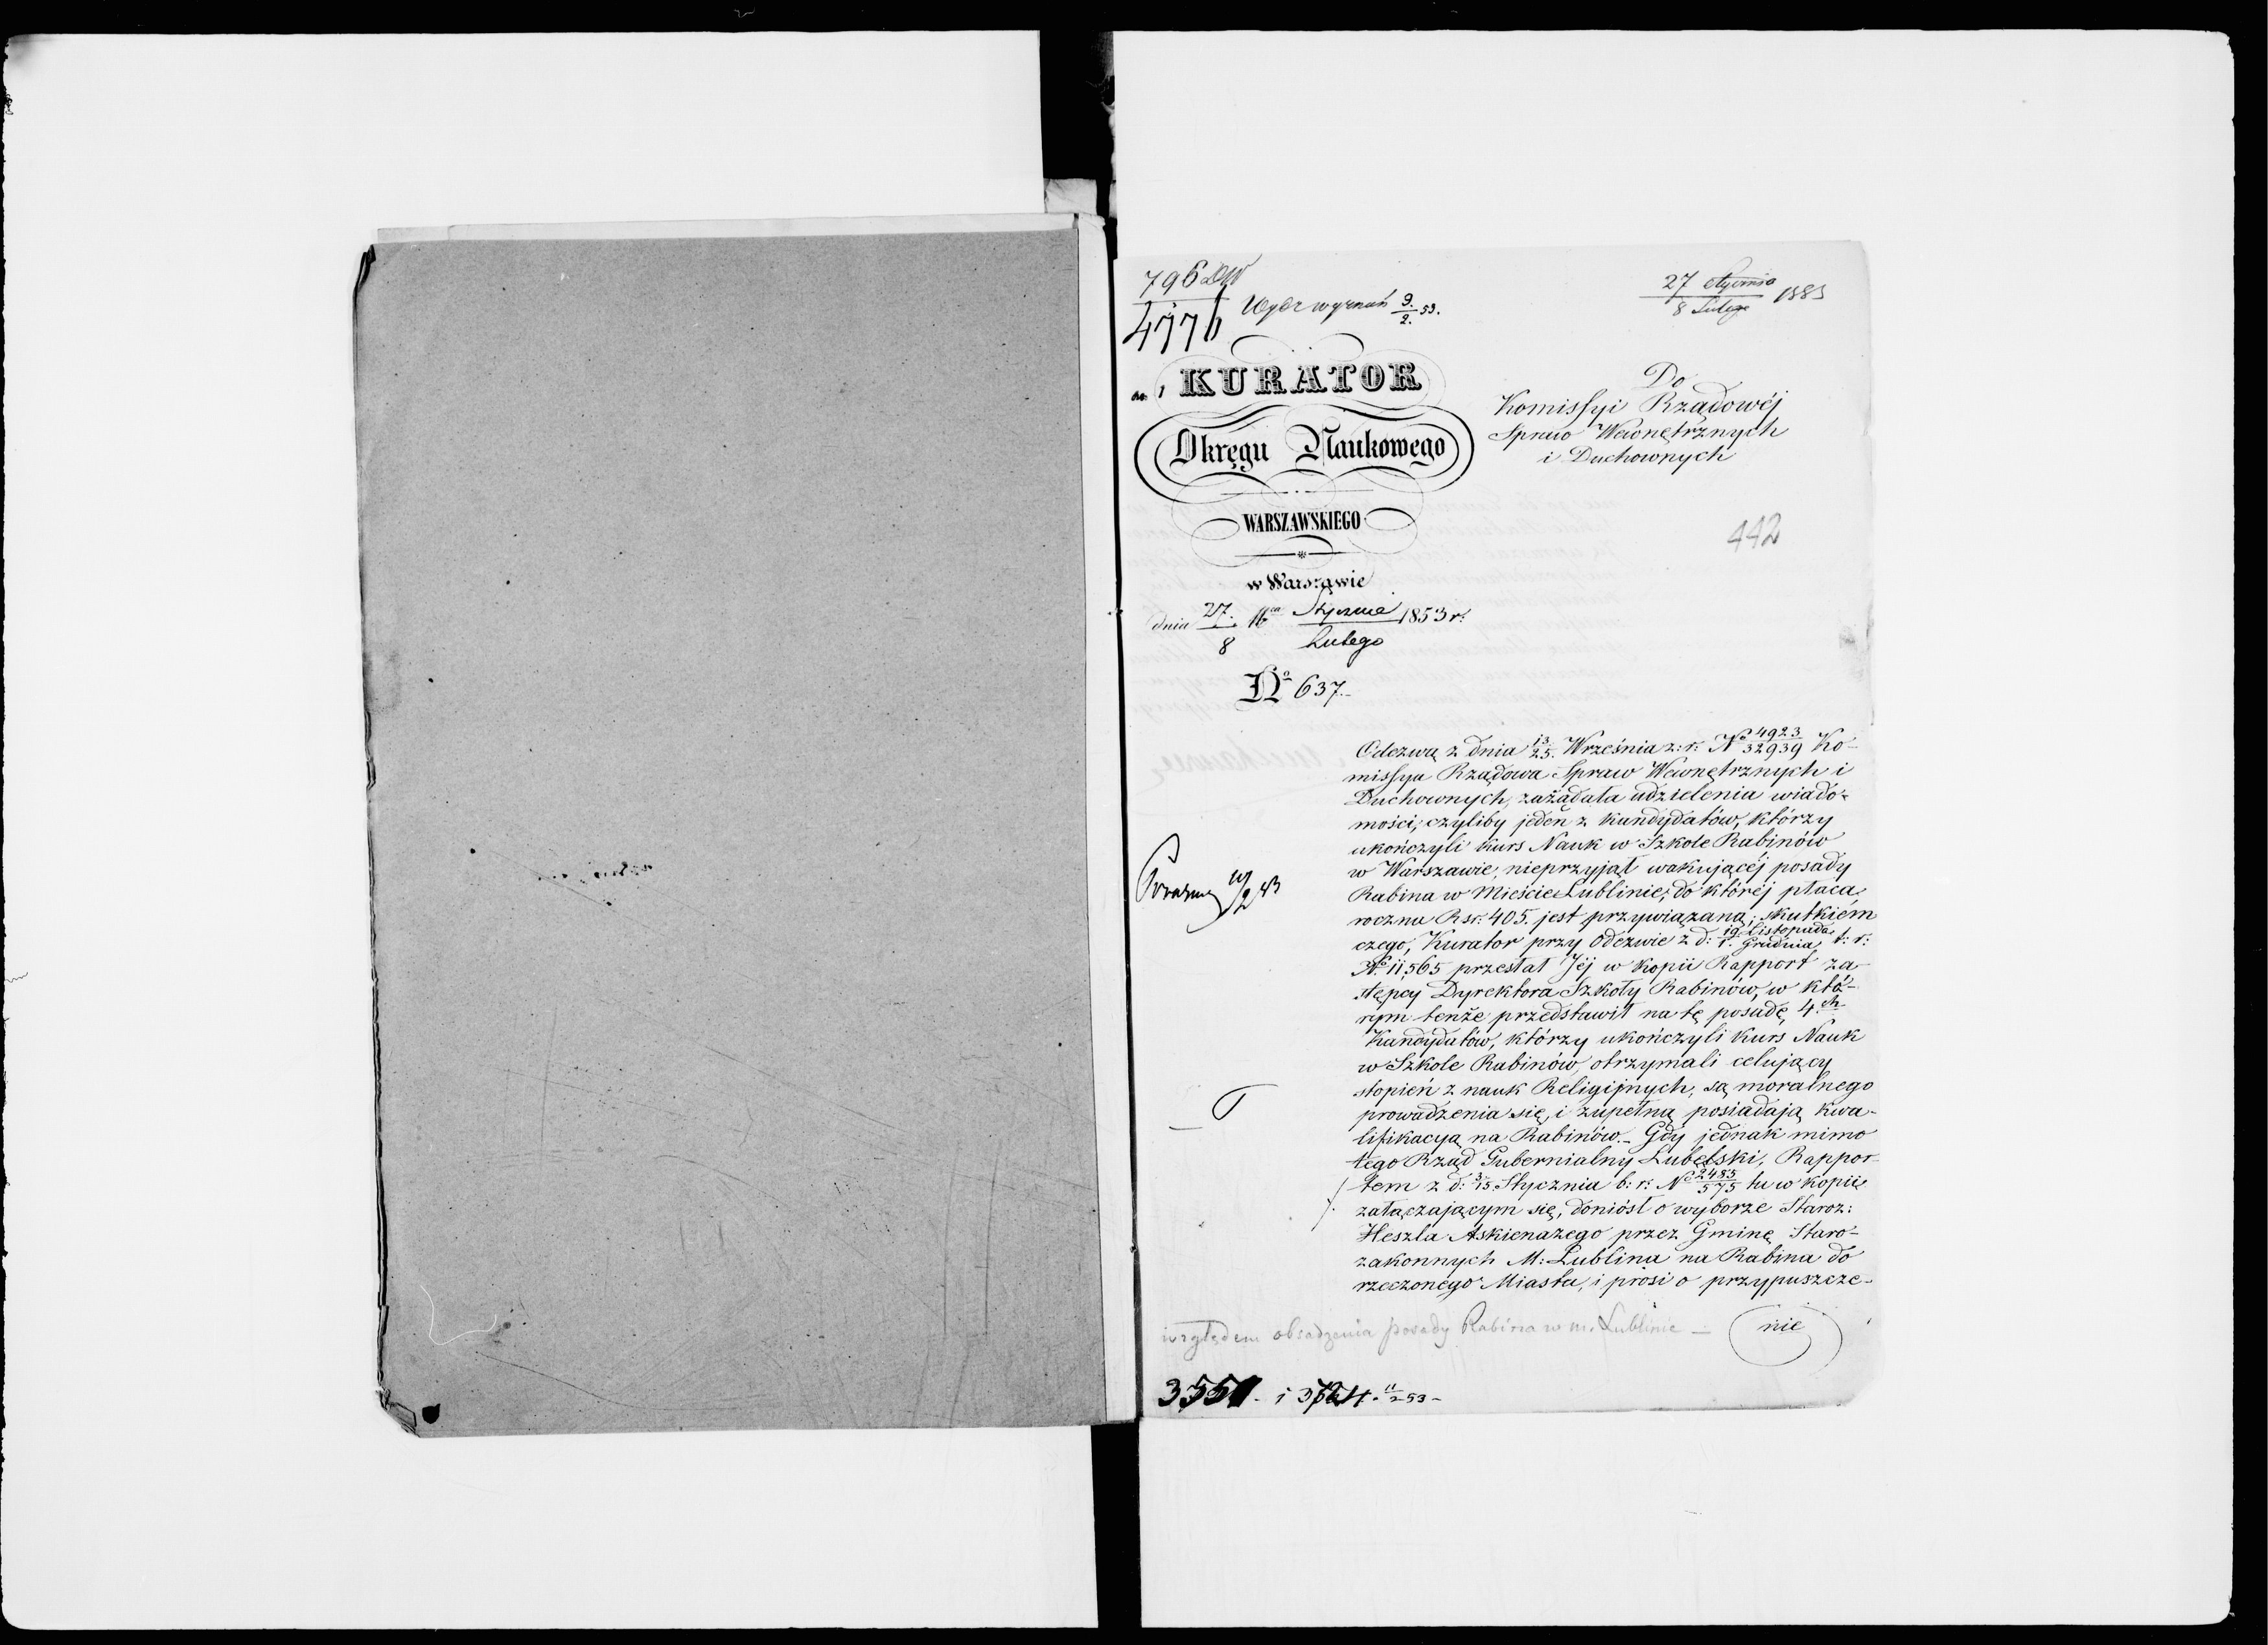 796 DW
4776
Wydz wyznań 9./2. 53.
27 Stycznia / 8 Lutego 1853
KURATOR
Okręgu Naukowego
WARSZAWSKIEGO
w Warszawie
dnia 27./8 Mca Stycznia/Lutego 1853 r.
No 637.
Do
Komissyi Rządowéj
Spraw Wewnętrznych
i Duchownych
442
Odezwą z dnia 13/25. Września z: r: No 4923/32939 Ko-
missya Rządowa Spraw Wewnętrznych i
Duchownych, zażądała udzielenia wiado-
mości, czyliby jeden z kandydatów, którzy
ukończyli kurs Nauk w Szkole Rabinów
w Warszawie, nieprzyjął wakującéj posady
Rabina w Mieście Lublinie, do któréj płaca
roczna Rsr: 405. jest przywiązaną; skutkiem
czego, Kurator przy Odezwie z d: 19. Listopada/1. Grudnia t: r:
No 11,565 przesłał Jéj w kopii Rapport za-
stępcy Dyrektora Szkoły Rabinów, w któ-
rym tenże przedstawił na tę posadę 4ch
Kandydatów, którzy ukończyli kurs Nauk
w Szkole Rabinów, otrzymali celujący
stopień z nauk Religijnych, są moralnego
prowadzenia się, i zupełną posiadają kwa-
lifikacyą na Rabinów. - Gdy jednak mimo
tego Rząd Gubernialny Lubelski, Rappor-
tem z d: 3/15 Stycznia b: r: No 2485/575 tu w kopii
załączającym się, doniósł o wyborze Staroz:
Heszla Askienazego przez Gminę Staro-
zakonnych M: Lublina na Rabina do
rzeczonego Miasta, i prosi o przypuszcze-
nie
względem obsadzenia posady Rabina w m. Lublinie —
11/2 53 -